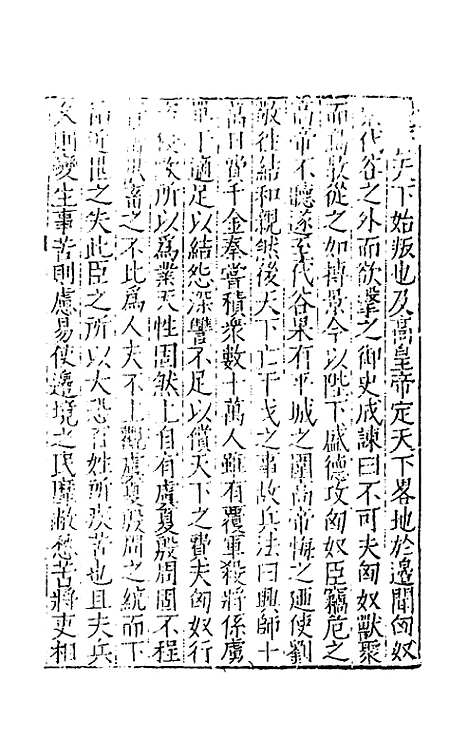 天下始叛也及高皇帝定天下畧地於邊聞匈奴
代谷之外而欲擊之御史成諫曰不可夫匈奴獸聚
而鳥散從之如搏景今以陛下盛德攻匈奴臣竊危之
高帝不聽遂至代谷果有平城之圍高帝悔之迺使劉
敬徃結和親然後天下亡干戈之事故兵法曰興師十
萬日費千金秦嘗積衆數十萬人雖有覆軍殺將係虜
單于適足以結怨深讐不足以償天下之費夫匈奴行
侵敺所以爲業天性固然上自有虞夏殷周固不程
畜之不比爲人夫不上觀虞夏殷周之統而下
循近世之失此臣之所以大恐百姓所疾苦也且夫兵
久則變生事苦則慮易使邊境之民靡敝愁苦將吏相